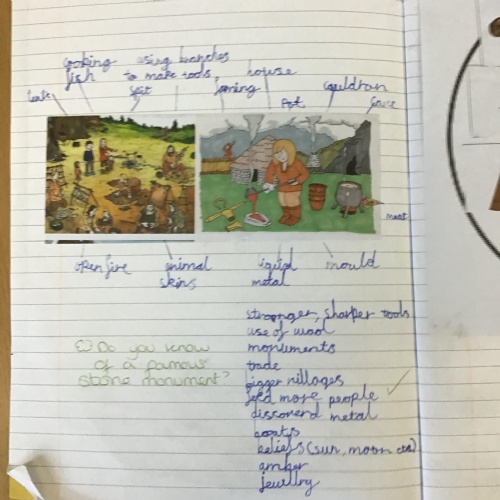 cooking fish
using branches to make tools,
house
spit
mining
Pot
cauldron
meat
open fire
animal skins
liquid metal
mould
stronger, sharper tools
use of wool
monuments
trade
bigger villages
feed more people
discoverd metal
boats
beliefs (sun, moon etc)
amber
jewellry
Do you know
of a famous
stone monument?